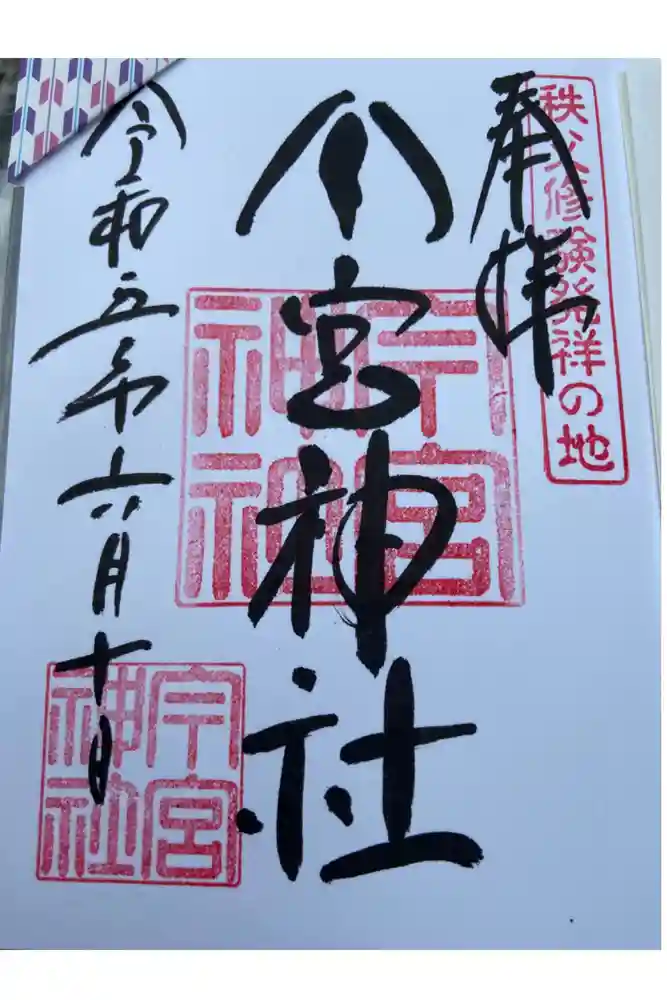 秩父修験発祥の地
奉拝
今宮神社
今宮神社
令和五年六月十日
今宮神社